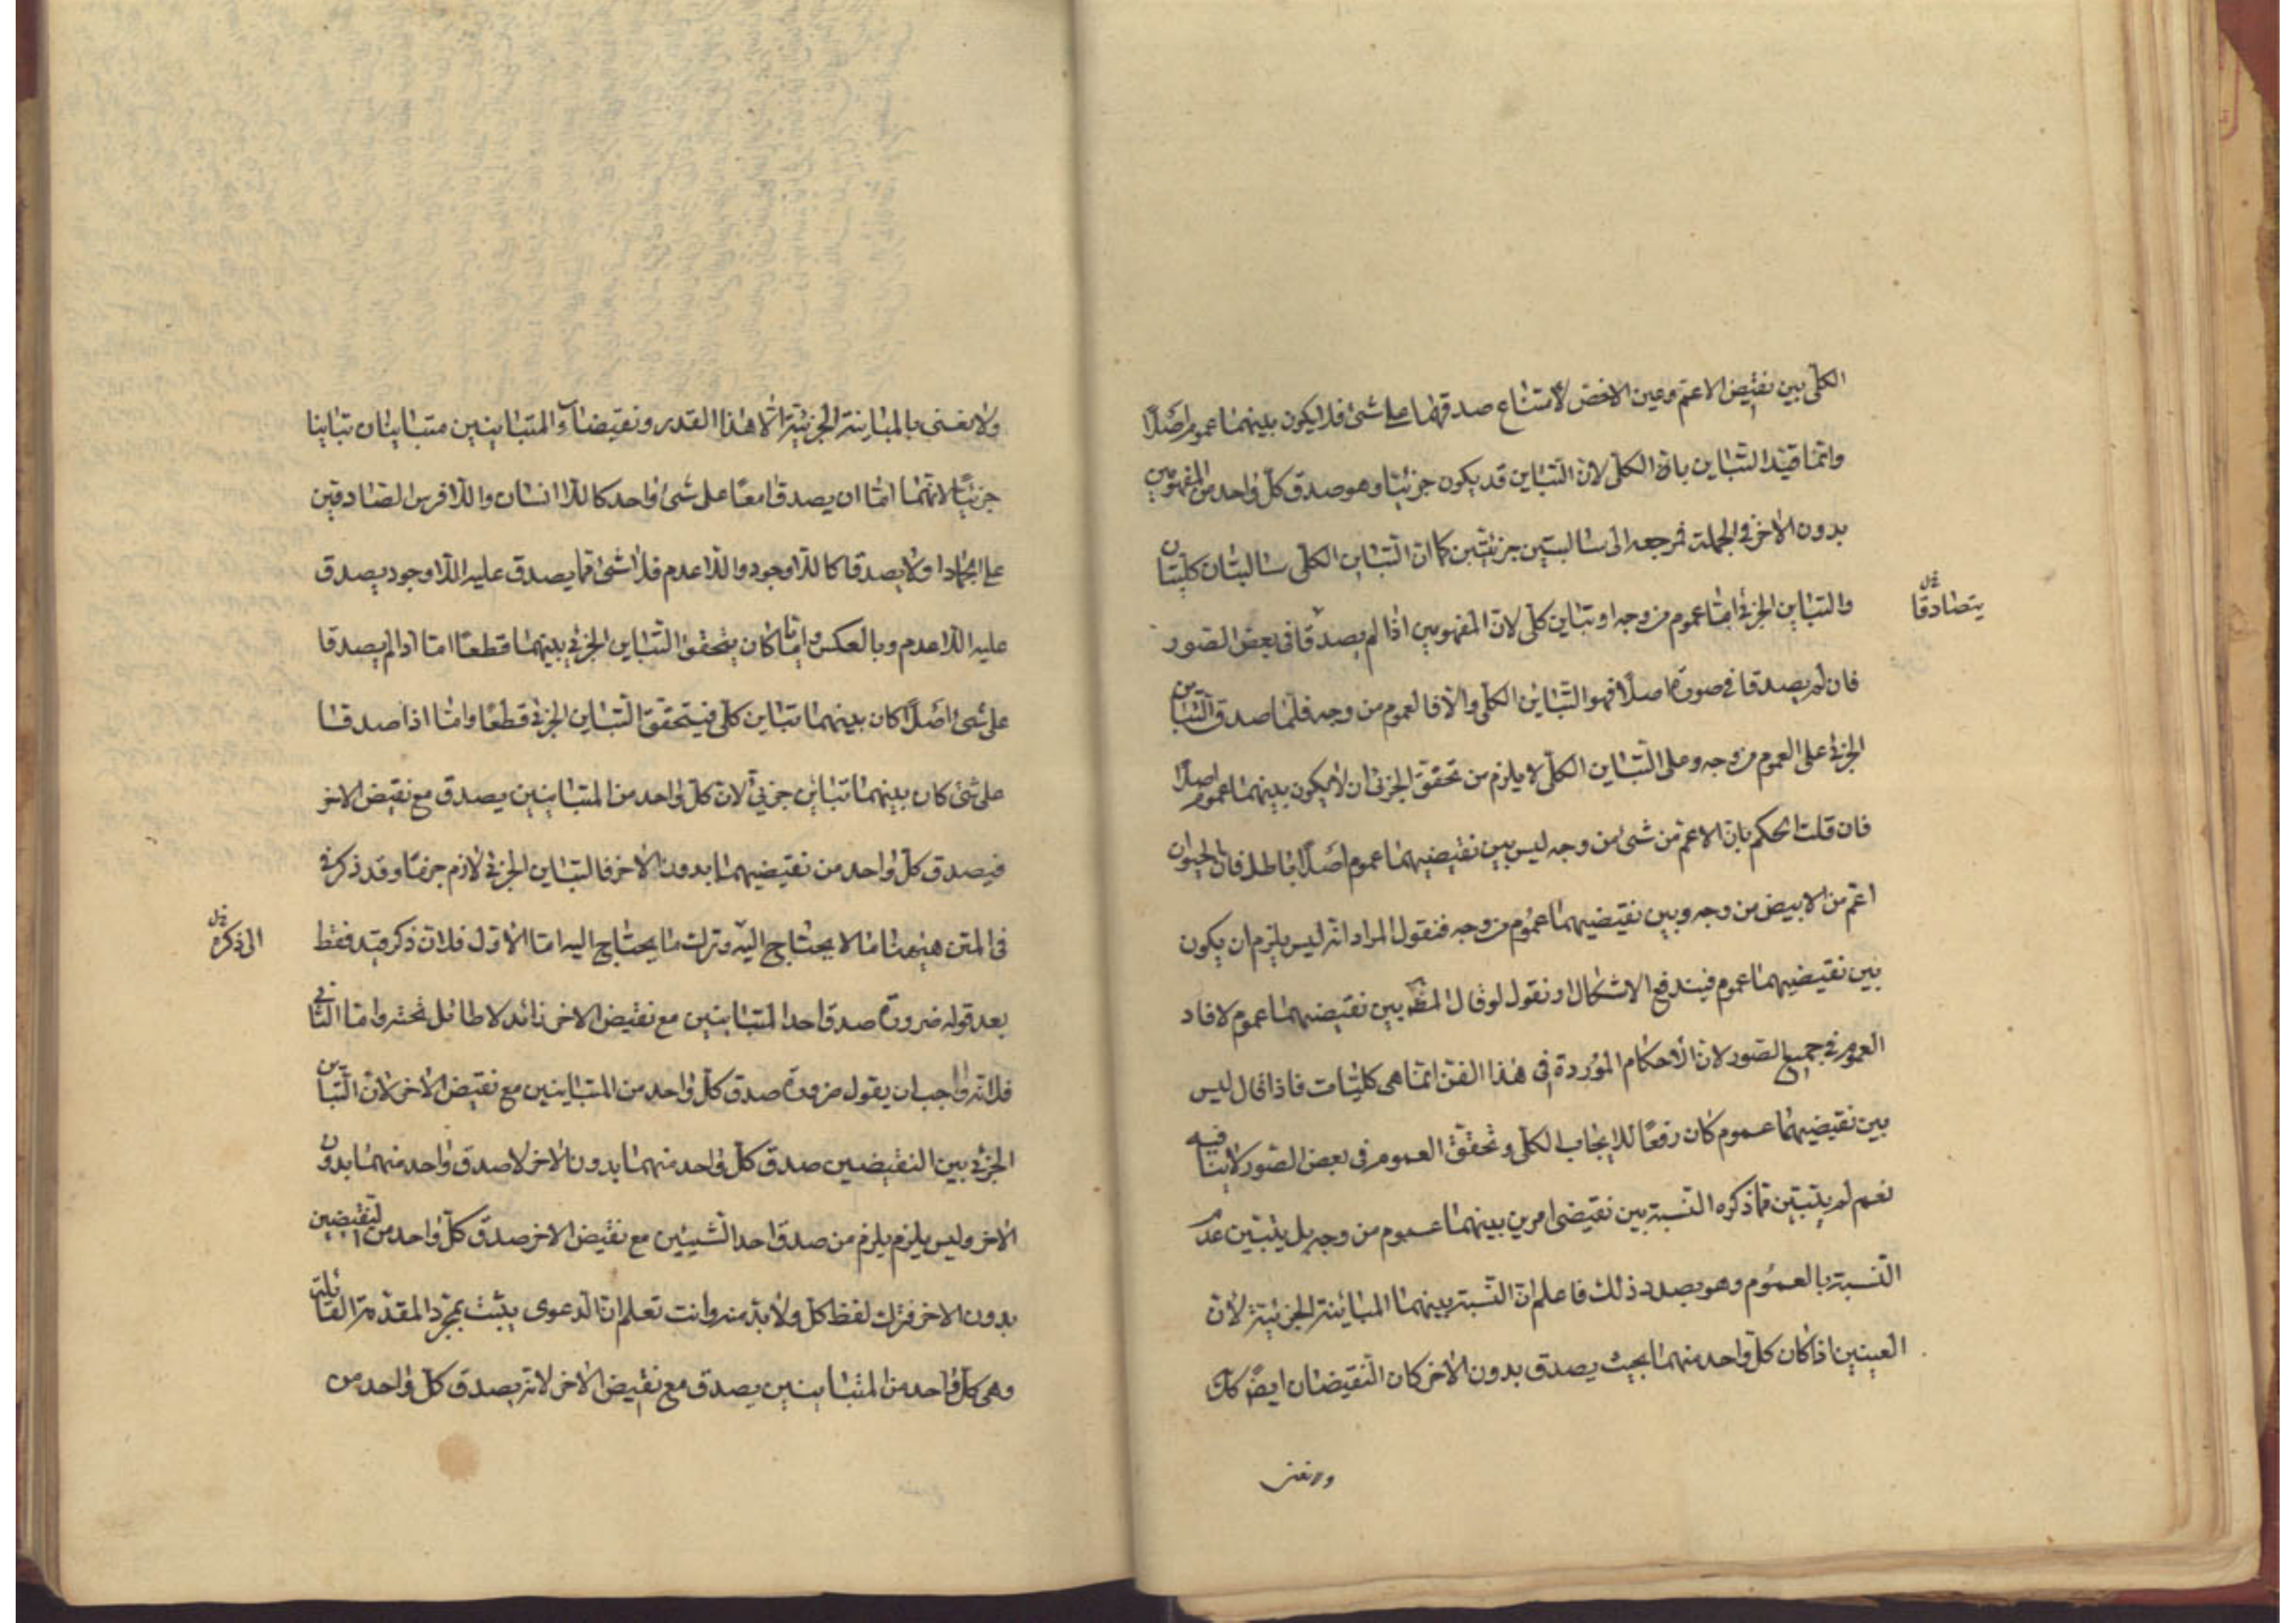 الكلّى بين نقيض الاعم وعين الاخص لامتناع صدقهما على شئ فلا يكون بينهما عموم اصلا
وانما قيد التباين بانه الكلى لان التباين قد يكون جزئيا وهو صدق كل واحد من المفهومين
بدون الاخر فى الجملة فمرجعه الى سالبتين جزئيتين كما ان التباين الكلى سالبتان كليتان
والتباين الجزئى اما عموم من وجه او تباين كلى لان المفهومين اذا لم يصدقا فى بعض الصور
يتصادقا
فان لم يصدقا فى صورة اصلا فهو التباين الكلى والا فالعموم من وجه فلما صدق التباين
الجزئى على العموم من وجه وعلى التباين الكلى لا يلزم من تحقق الجزئى ان لا يكون بينهما عموم اصلا
فان قلت الحكم بان الاعم من شئ من وجه ليس بين نقيضيهما عموم اصلا باطل فان الحيوان
اعم من الابيض من وجه وبين نقيضيهما عموم من وجه فنقول المراد انه ليس يلزم ان يكون
بين نقيضيهما عموم فيندفع الاشكال او نقول لو قال بين نقيضيهما عموم لافاد
العموم فى جميع الصور لان الاحكام الموردة فى هذا الفن انما هى كليات فاذا قال ليس
بين نقيضيهما عموم كان رفعا للايجاب الكلى وتحقق العموم فى بعض الصور لا ينافيه
نعم لم يتبين مما ذكره النسبة بين نقيضى امرين بينهما عموم من وجه بل يتبين عدم
النسبة بالعموم وهو بصدد ذلك فاعلم ان النسبة بينهما المباينة الجزئية لان
العينين اذا كان كل واحد منهما بحيث يصدق بدون الاخر كان النقيضان ايضا كك
ولا نعنى
ولا نعنى بالمباينة الجزئية الا هذا القدر ونقيضا المتباينين متباينان تباينا
جزئيا لانهما اما ان يصدقا معا على شئ واحد كاللا انسان واللا فرس الصادقين
على الجماد او لا يصدقا كاللا وجود واللا عدم فلا شئ مما يصدق عليه اللا وجود يصدق
عليه اللا عدم وبالعكس وايا ما كان يتحقق التباين الجزئى بينهما قطعا اما اذا لم يصدقا
على شئ اصلا كان بينهما تباين كلى فيتحقق التباين الجزئى قطعا واما اذا صدقا
على شئ كان بينهما تباين جزئى لان كل واحد من المتباينين يصدق مع نقيض الاخر
فيصدق كل واحد من نقيضيهما بدون الاخر فالتباين الجزئى لازم جزما وقد ذكر فى
فى المتن ههنا ما لا يحتاج اليه وترك ما يحتاج اليه اما الاول فلان ذكر قيد فقط
الى ذكره
بعد قوله ضرورة صدق احد المتباينين مع نقيض الاخر زائد لا طائل تحته واما الثانى
فلانه واجب ان يقول ضرورة صدق كل واحد من المتباينين مع نقيض الاخر لان التباين
الجزئى بين النقيضين صدق كل واحد منهما بدون الاخر لا صدق واحد منهما بدون
الاخر وليس يلزم يلزم من صدق احد الشيئين مع نقيض الاخر صدق كل واحد من النقيضين
بدون الاخر فترك لفظ كل ولا بد منه وانت تعلم ان الدعوى يثبت بمجرد المقدمة القائلة
وهى كل واحد من المتباينين يصدق مع نقيض الاخر لانه يصدق كل واحد من